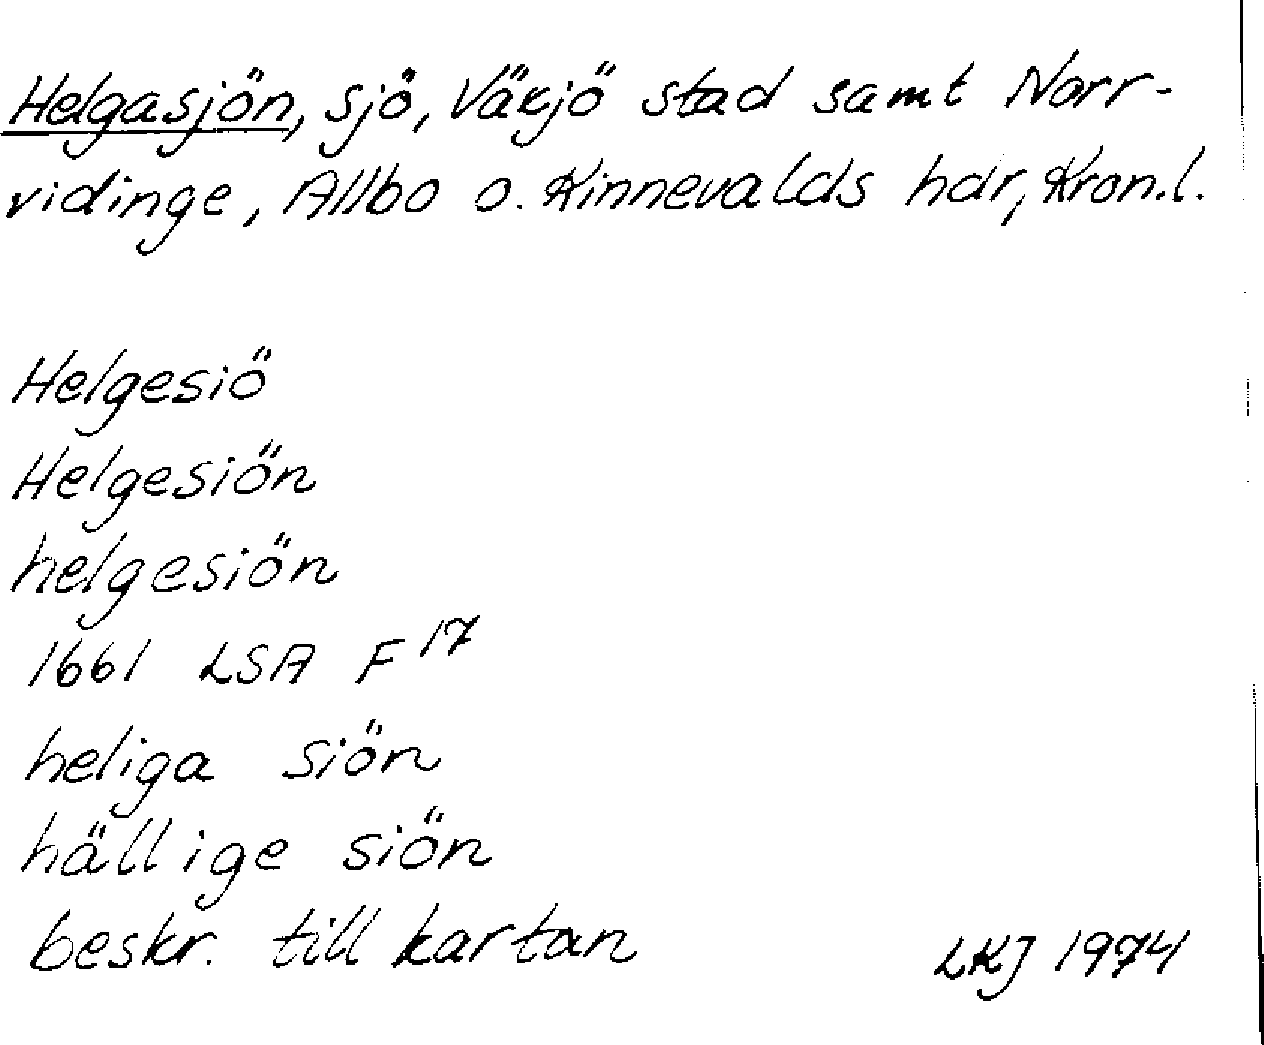 Helgasjön, sjö, Växjö stad samt Norr-
vidinge, Allbo o. Kinnevalds hdr, Kron.l.
Helgesiö
Helgesiön
helgesiön
1661 LSA F 17
heliga siön
hällige siön
beskr. till kartan LKJ 1974